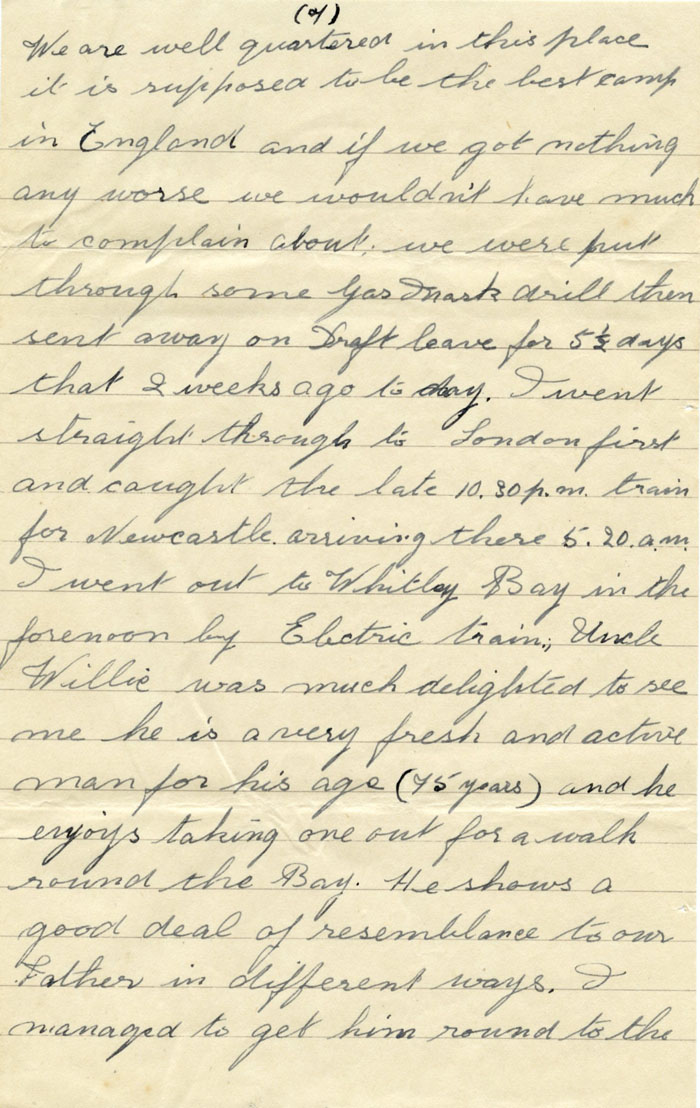 We are well quartered in this place
it is supposed to be the best camp
in England and if we got nothing
any worse we wouldn't have much
to complain about; we were put
through some Gas Mask drill then
sent away on Draft leave for 5½ days
that 2 weeks ago to day. I went
straight through to London first
and caught the late 10.30 p.m. train
for Newcastle arriving there 5.20.a.m.
I went out to Whitley Bay in the
forenoon by Electric train; Uncle
Willie was much delighted to see
me he is a very fresh and active
man for his age (75 years) and he
enjoys taking one out for a walk
round the Bay. He shows a
good deal of resemblance to our
Father in different ways. I
managed to get him round to the